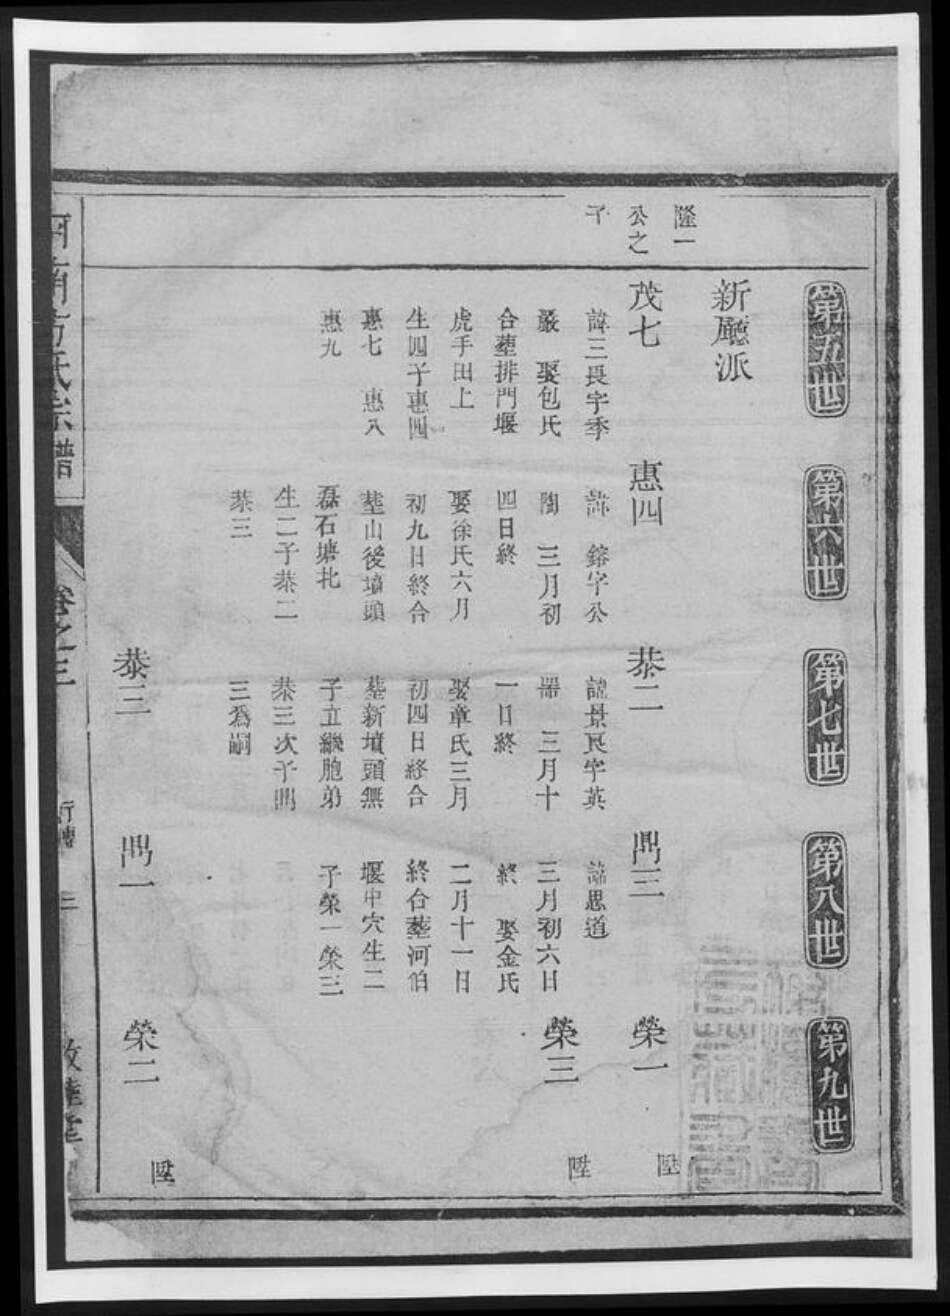 第五世
第六世
第七世
第八世
第九世
新廳派
隆一
公之
子
茂七
諱三畏字季
嚴 娶包氏
合塟排門堰
虎手田上
生四子惠四
惠七 惠八
惠九
惠四
諱 鎔字公
陶 三月初
四日終
娶徐氏六月
初九日終合
塟山後墳頭
磊石塘圠
生二子恭二
恭三
恭二
諱景良字英
器 三月十
一日終
娶章氏三月
初四日終合
塟新墳頭無
子立繼胞弟
恭三次子鼎
三爲嗣
鼎三
諱思道
三月初六日
終 娶金氏
二月十一日
終合塟河伯
堰中穴生二
子榮一榮三
榮一
陞
榮三
陞
恭三
鼎一
榮二
陞
河南方氏宗譜
卷之三
行傳
三
敦睦堂